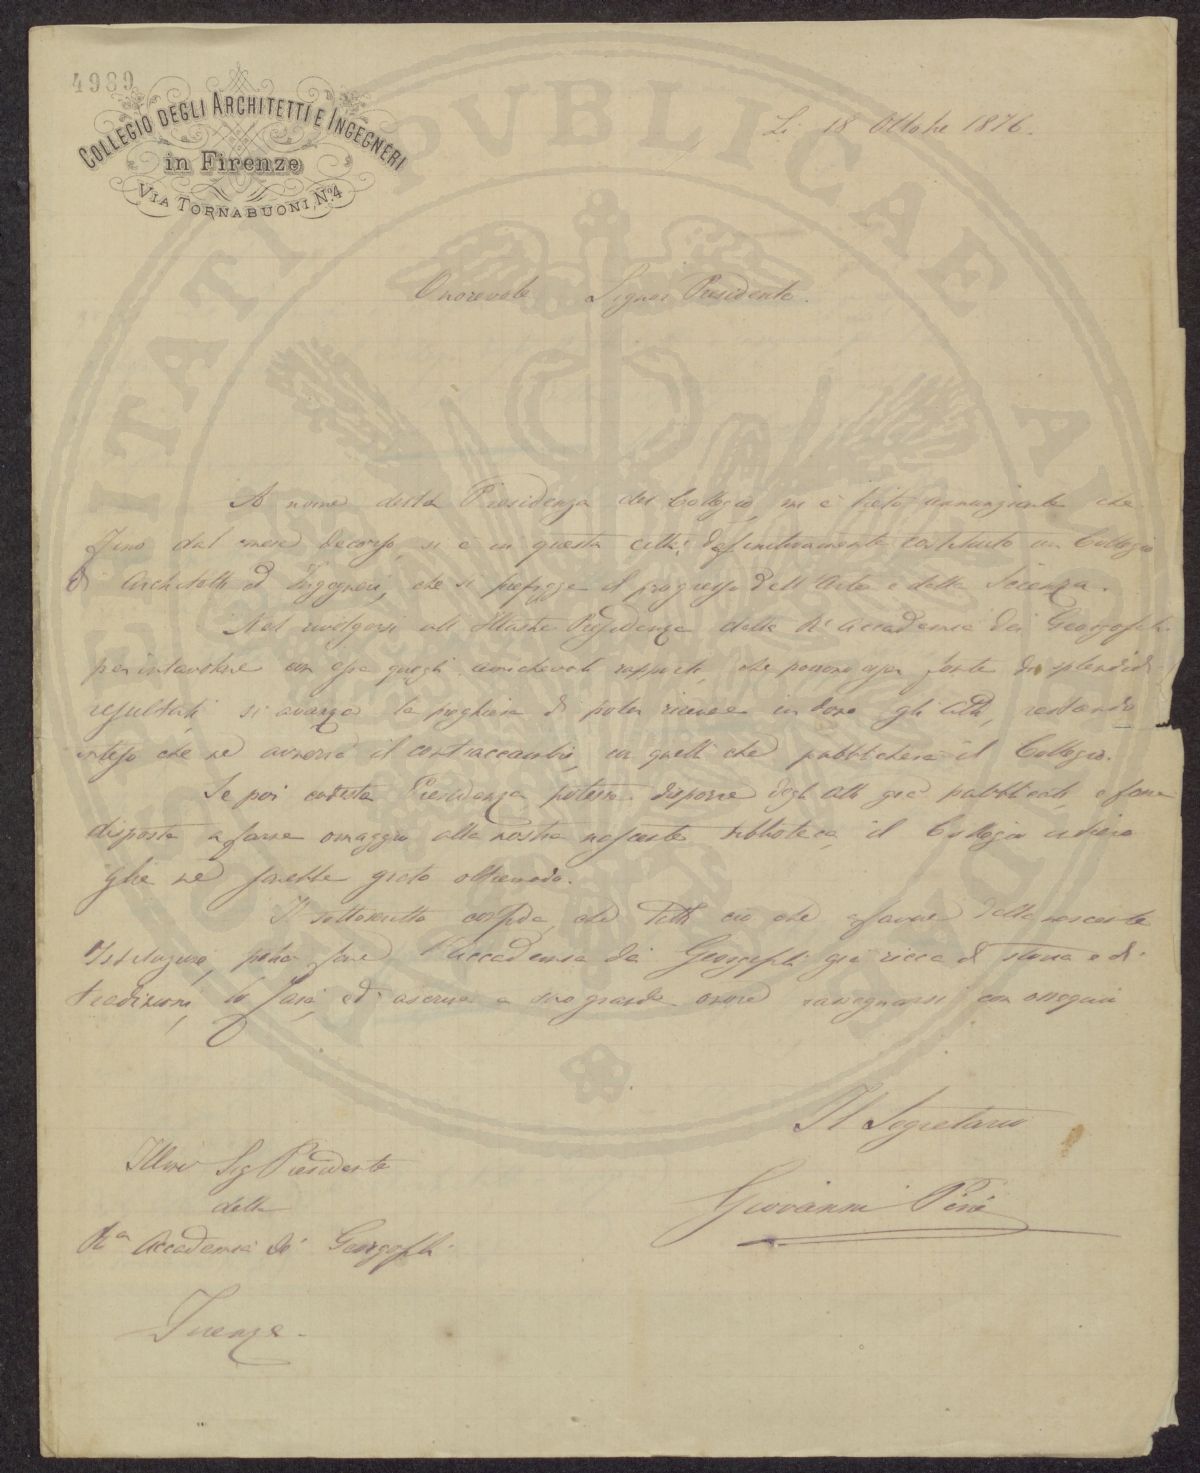 4989
COLLEGIO DEGLI ARCHITETTI E INGEGNERI
in Firenze
VIA TORNABUONI, N.º 4
Li 18 Ottobre 1876.
Onorevole Signor Presidente.
A nome della Presidenza del Collegio, mi è lieto annunziarle che
fino dal mese decorso, si è in questa città, definitivamente costituito un Collegio
di Architetti ed Ingegneri, che si prefigge il progresso dell'Arte e della Scienza.
Nel rivolgersi all'Illustre Presidenza della Rª Accademia dei Georgofili
per intavolare con essa quegli amichevoli rapporti, che possono esser fonte di splendidi
resultati, si avanza la preghiera di poter ricevere in dono gli Atti, restando
inteso che ne avverrà il contraccambio, in quelli che pubblicherà il Collegio.
Se poi codesta Presidenza potesse disporre degli Atti già pubblicati, e fosse
disposta a farne omaggio alla nostra nascente biblioteca, il Collegio intiero
glie ne sarebbe grato oltremodo.
Il sottoscritto confida, che tutto ciò che a favore della nascente
Istituzione, potrà fare l'Accademia dei Georgofili già ricca di storia e di
tradizioni, lo farà, ed ascrive a suo grande onore rassegnarsi con ossequio
Il Segretario
Giovanni Pini
Illmo Sig Presidente
della
Rª Accademia dei Georgofili
Firenze.
PUBLICAE